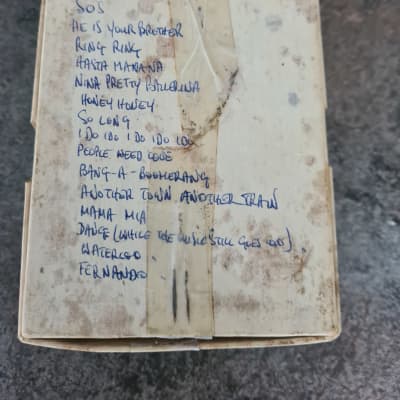 SOS
HE IS YOUR BROTHER
RING RING
HASTA MANANA
NINA PRETTY BALLERINA
HONEY HONEY
SO LONG
I DO I DO I DO I DO I DO
PEOPLE NEED LOVE
BANG-A-BOOMERANG
ANOTHER TOWN ANOTHER TRAIN
MAMA MIA
DANCE (WHILE THE MUSIC STILL GOES ON)
WATERLOO
FERNANDO